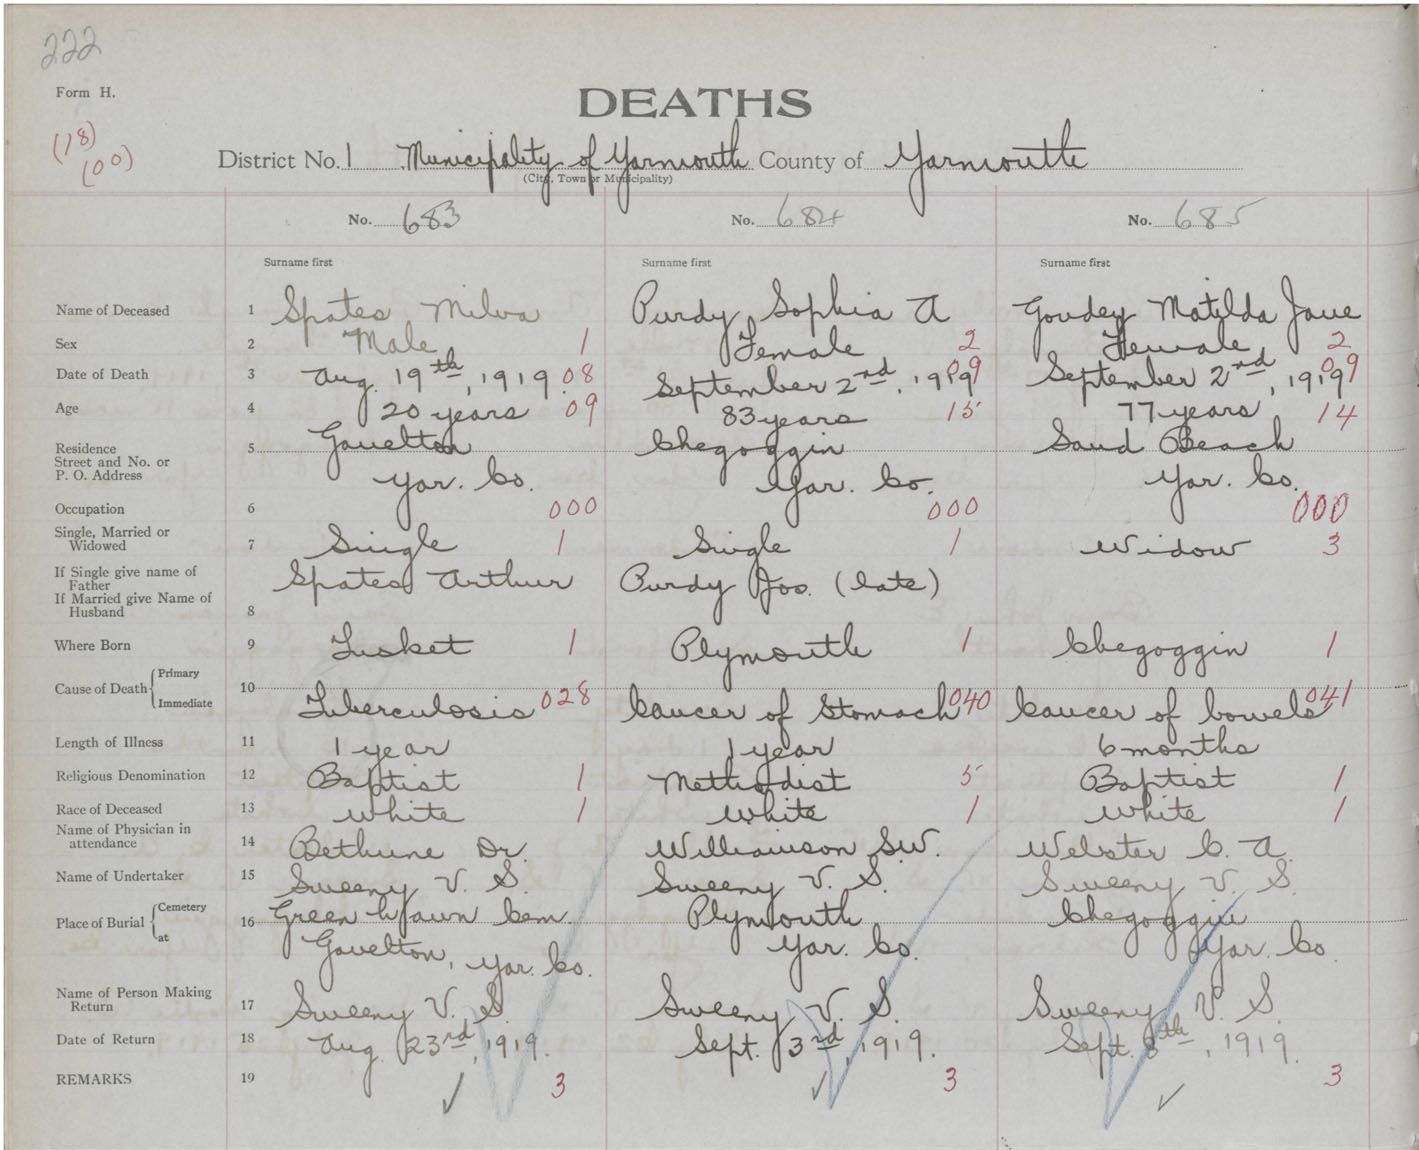 222
Form H.
DEATHS
(18)
(00)
District No. 1 Municipality of Yarmouth County of Yarmouth
(City, Town or Municipality)
No. 683 No. 684 No. 685
Surname first Surname first Surname first
Name of Deceased 1 Spates Milva Purdy Sophia A Goudey Matilda Jane
Sex 2 Male 1 Female 2 Female 2
Date of Death 3 Aug. 19th, 1919 08 September 2nd, 1919 09 September 2nd, 1919 09
Age 4 20 years 09 83 years 15 77 years 14
Residence 5 Gavelton Chegoggin Sand Beach
Street and No. or
P. O. Address Yar. Co. Yar. Co. Yar. Co.
Occupation 6 000 000 000
Single, Married or
Widowed 7 Single 1 Single 1 Widow 3
If Single give name of
Father Spates Arthur Purdy Jos. (late)
If Married give Name of
Husband 8
Where Born 9 Tusket 1 Plymouth 1 Chegoggin 1
Cause of Death Primary 10
Immediate Tuberculosis 028 Cancer of Stomach 040 Cancer of bowels 041
Length of Illness 11 1 year 1 year 6 months
Religious Denomination 12 Baptist 1 Methodist 5 Baptist 1
Race of Deceased 13 White 1 White 1 White 1
Name of Physician in
attendance 14 Bethune Dr. Williamson S.W. Webster C. A.
Name of Undertaker 15 Sweeny V. S. Sweeny V. S. Sweeny V. S.
Place of Burial Cemetery 16 Green Cem. Plymouth Chegoggin
at Gavelton, Yar. Co. Yar. Co. Yar. Co.
Name of Person Making
Return 17 Sweeny V. S. Sweeny V. S. Sweeny V. S.
Date of Return 18 Aug. 23rd, 1919. Sept. 3rd, 1919. Sept. 8th, 1919.
REMARKS 19 3 3 3